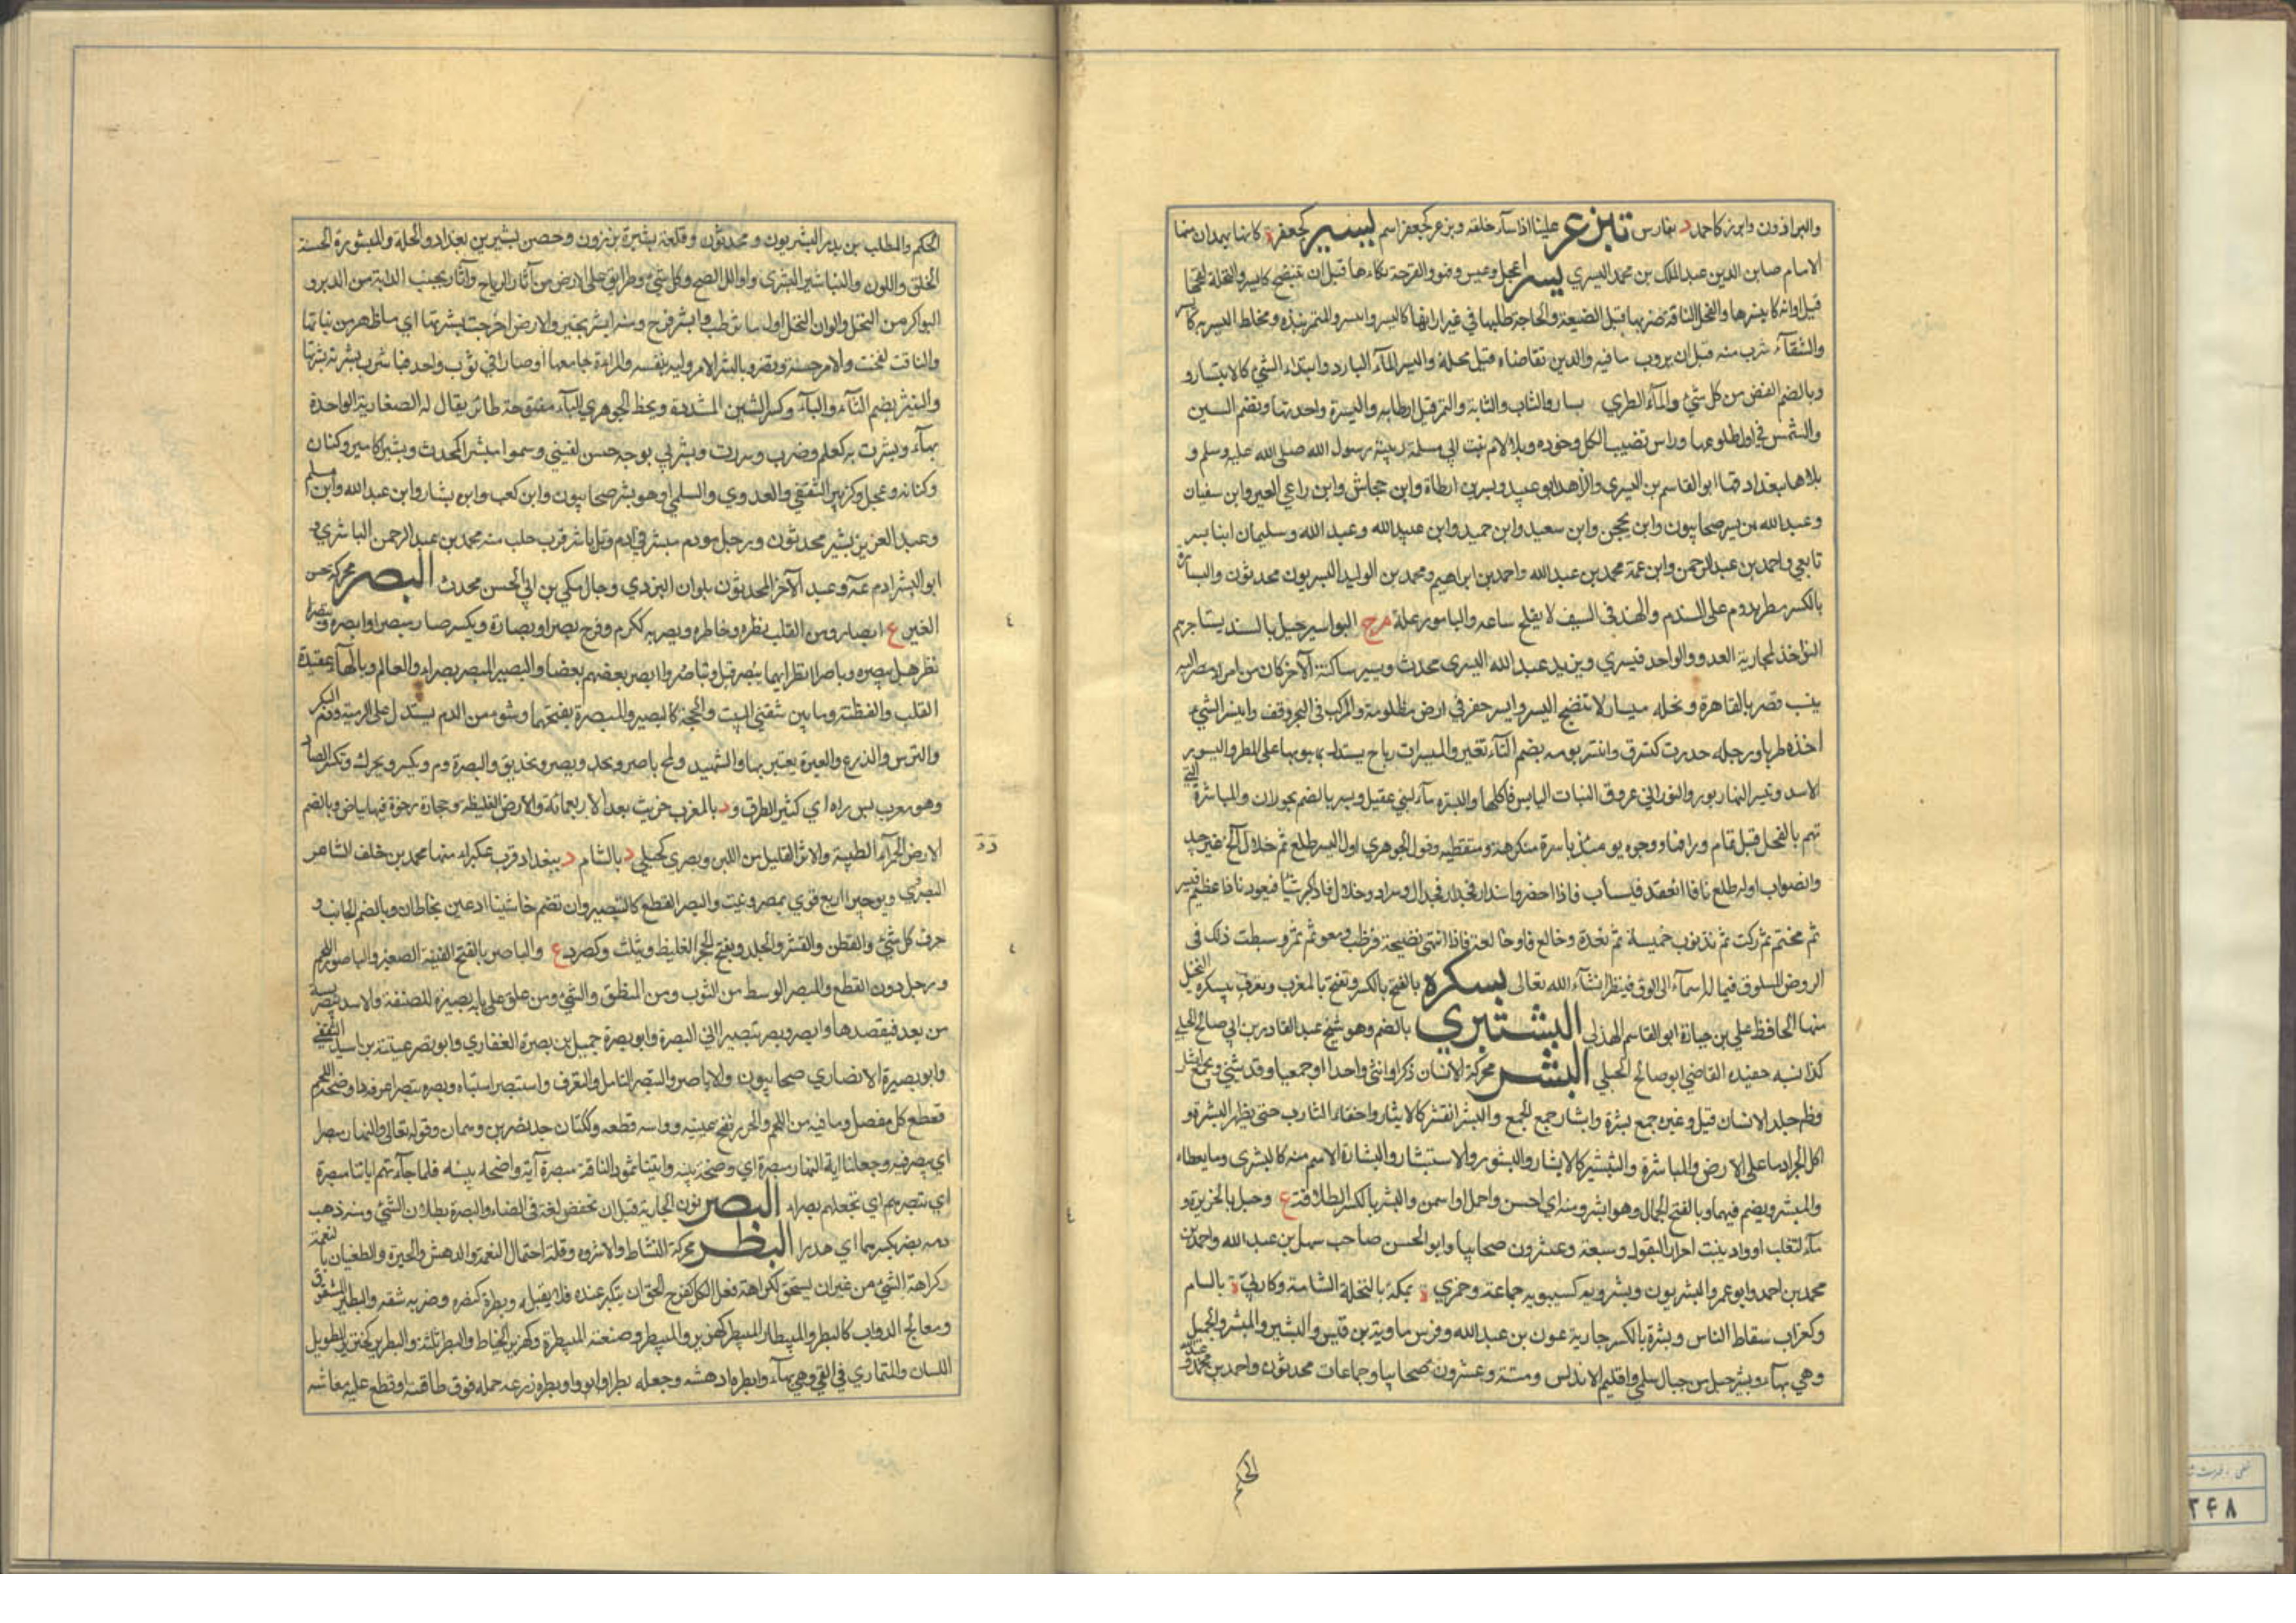 والبرافرون وابزر كاحمد د بفارس تبزعر علينا اذا ساء خلقه وبزعر كجعفر اسم بسبير كجعفر ة كانها بهمدان منها
الامام صاين الدين عبد الملك بن محمد البسبري بسر اعجل وعبس وقهر والقرحة نكاها قبل ان تنضج كابسر والنخلة لقحها
قبل اوانه كابتسرها والفحل الناقة ضربها قبل الضبعة والحاجة طلبها في غير اوانها كابسر وابتسر والتمر نبذه وخلط البسر به كابسر
والسقاء شرب منه قبل ان يروب ما فيه والدين تقاضاه قبل محله والبسر الماء البارد وابتداء الشيء كالابتسار و
وبالضم الغض من كل شيء والماء الطري بسار والشاب والشابة والتمر قبل ارطابه والبسرة واحدتها وتضم السين
والشمس في اول طلوعها وراس قضيب الكلب وخرزة وبلا لام بنت ابي سلمة ربيبة رسول الله صلى الله عليه وسلم و
بلا هاء بغداد منها ابو القاسم بن البسري والزاهد ابو عبيد وبسر بن ارطاة وابن جحاش وابن راعي العير وابن سفيان
وعبد الله بن بسر صحابيون وابن محجن وابن سعيد وابن حميد وابن عبيد الله وعبد الله وسليمان ابنا بسر
تابعي واحمد بن عبد الرحمن وابن عمه محمد بن عبد الله واحمد بن ابراهيم ومحمد بن الوليد البسريون محدثون والبسارة
بالكسر مطر يدوم على السند والهند في الصيف لا يقلع ساعة والباسور علة م ج البواسير جيل بالسند يستاجرهم
النواخذ لمحاربة العدو والواحد بيسري ويزيد عبد الله البيسري محدث وبيسر ساكنة الآخر كان من امراء مصر اليه
ينسب قصر بالقاهرة ونخلة مبسار لا تنضج البسر وابسر حفر في ارض مظلومة والمركب في البحر وقف وابتسر الشيء
اخذه طريا ورجله خدرت كتبسرت وابتسر لونه بضم التاء تغير والمبسرات رياح يستدل بهبوبها على المطر والبسور
الاسد وتبسر النهار برد والثور اتى عروق النبات اليابس فاكلها والبسرة ماء لبني عقيل وبسر بالضم بحوران والمباسرة التي
تهم بالفحل قبل تمام وداقها ووجوه يومئذ باسرة متكرهة متقطبة وقول الجوهري اول البسر طلع ثم خلال الخ غير جيد
والصواب اوله طلع فاذا انعقد فسياب فاذا اخضر واستدار فجدال فسراد وخلال فاذا كبر شيئا فبغو فاذا عظم فبسر
ثم مخطم ثم موكت ثم تذنوب ثم جمسة ثم ثعدة وخالع وخالعة فاذا انتهى نضجه فرطب ومعو ثم تمر وبسطت ذلك في
الروض المسلوف فيما له اسمان الى الوف فلينظر ان شاء الله تعالى بسكرة بالفتح بالكسر وتفتح بالمغرب ويعرف ببسكرة النخيل
منها الحافظ علي بن جبارة ابو القاسم الهذلي البشتيري بالضم وهو شيخ عبد القادر بن ابي صالح الجيلي
كذا نسبه حفيده القاضي ابو صالح الجيلي البشر محركة الانسان ذكرا وانثى واحدا او جمعا وقد يثنى ويجمع ابشار
وظاهر جلد الانسان قيل وغيره جمع بشرة وابشار جمع الجمع والبشر القشر كالابشار واحفاء الشارب حتى يظهر البشرة و
اكل الجراد ما على الارض والمباشرة والتبشير كالابشار والبشور والاستبشار والبشارة الاسم منه كالبشرى وما يعطاه
والمبشر ويضم فيهما وبالفتح الجمال وهو ابشر منه اي احسن واجمل واسمن والبشر بالكسر الطلاقة ع وجبل بالجزيرة و
ماء لتغلب او واد ينبت احرار البقول وسبعة وعشرون صحابيا وابو الحسن صاحب سهل بن عبد الله واحمد بن
محمد بن احمد وابو عمرو البشريون وبشرويه كسيبويه جماعة وجمزى ة بمكة بالنخلة الشامية وكاربى ة بالشام
وكغراب سقاط الناس وبشرة بالكسر جارية عون بن عبد الله وفرس ماوية بن قيس والبشير المبشر والجميل
وهي بهاء وبشير جبل من جبال سلمى واقليم الاندلس وستة وعشرون صحابيا وجماعات محدثون واحمد بن محمد و عبد
الحكم
الحكم والمطلب بن بدر البشيريون محدثون وقلعة بشير بزوزن وحصن بشير بين بغداد والحلة والمبشورة الحسنة
الخلق واللون والتباشير البشرى واوائل الصبح وكل شيء وطرائق على الارض من آثار الرياح وآثار بجنب الدابة من الدبر و
البواكر من النخل والوان النخل اول ما يرطب وابشر فرح ومنه ابشر بخير والارض اخرجت بشرتها اي ما ظهر من نباتها
والناقة لقحت والامر حسنه ونضره وباشر الامر وليه بنفسه والمراة جامعها او صارا في ثوب واحد فباشرت بشرته بشرتها
والتبشر بضم التاء والباء وكسر الشين المشددة وبخط الجوهري الباء مفتوحة طائر يقال له الصفارية الواحدة
بهاء وبشرت به كعلم وضرب وسررت وبشرني بوجه حسن لقيني وسموا مبشرا كمحدث وبشيرا كامير وكتان
وكتابة وعجل وكزبير الثقفي والعدوي والسلمي او هو بشر صحابيون وابن كعب وابن يسار وابن عبد الله وابن مسلم
وعبد العزيز بن بشير محدثون ورجل مودم مبشر في ادم وتل باشر قرب حلب منه محمد بن عبد الرحمن الباشري و
ابو البشر آدم عم وعبد الآخر المحدث وبلوان اليزدي وجال مكي بن ابي الحسن محدث البصر محركة حس
العين ع ابصار ومن القلب نظره وخاطره وبصر به ككرم وفرح بصرا وبصارة ويكسر صار مبصرا وابصره وتبصره
نظر هل يبصره وباصرا نظرا ايهما يبصر قبل وتباصروا ابصر بعضهم بعضا والبصير المبصر بصراء والعالم وبالهاء عقيدة
القلب والفطنة وما بين شقتي البيت والحجة كالبصير والمبصرة بفتحهما وشيء من الدم يستدل على الرمية ودم البكر
والترس والدرع والعبرة يعتبر بها والشهيد ولمح باصر ذو بصر وتحديق والبصرة د م ويكسر ويحرك وتكسر الصاد
وهو معرب بس راه اي كثير الطرق ود بالمغرب خربت بعد الاربعمائة والارض الغليظة وحجارة رخوة فيها بياض وبالضم
الارض الحمراء الطيبة والاثر القليل من اللبن وبصرى كحبلى د بالشام د ببغداد قرب عكبراء منها محمد بن خلف الشاعر
البصروي وبوصير اربع قرى بمصر ونبت والبصر القطع كالتبصير وان تضم حاشيتا اديمين يخاطان وبالضم الجانب و
حرف كل شيء والقطن والقشر والجلد ويفتح الحجر الغليظ ويثلث وكصرد ع والباصر بالفتح القتب الصغير والباصور اللحم
ورحل دون القطع والمبصر الوسط من الثوب ومن المنطق والمشي ومن علق على بابه بصيرة للشقة والاسد يبصر فريسة
من بعد فيقصدها وابصر وبصر تبصيرا اتى البصرة وابو بصرة جميل بن بصرة الغفاري وابو بصير عتبة بن اسيد الثقفي
وابو بصيرة الانصاري صحابيون والاباصر والتبصر التامل والتعرف واستبصر استبان وبصره تبصيرا عرفه واوضحه واللحم
قطع كل مفصل وما فيه من اللحم والجرو فتح عينيه وراسه قطعه وككتان جد نصر بن دهمان وقوله تعالى والنهار مبصرا
اي يبصر فيه وجعلنا آية النهار مبصرة اي واضحة بينة وآتينا ثمود الناقة مبصرة آية واضحة بينة فلما جاءتهم آياتنا مبصرة
اي تبصرهم اي تجعلهم بصراء البضر نوف الجارية قبل ان تخفض لغة في الظاء والبضرة بطلان الشيء ومنه ذهب
دمه بضرا بكسرهما اي هدرا البطر محركة النشاط والاشر وقلة احتمال النعمة والدهش والحيرة والطغيان بالنعمة
وكراهة الشيء من غير ان يستحق الكراهة فعل الكل كفرح الحق ان يتكبر عنده فلا يقبله وبطره كنصره وضربه شقه والبطير المشقوق
ومعالج الدواب كالبطر والبيطار والبيطر كهزبر والمبيطر وصنعته البيطرة وكهزبر الخياط والبطر ثلثه والبطرير كخنزير الطويل
اللسان والمتمادي في الغي وهي بهاء وابطره ادهشه وجعله بطرا وابطره ذرعه حمله فوق طاقته او قطع عليه معاشه
۲۴۸